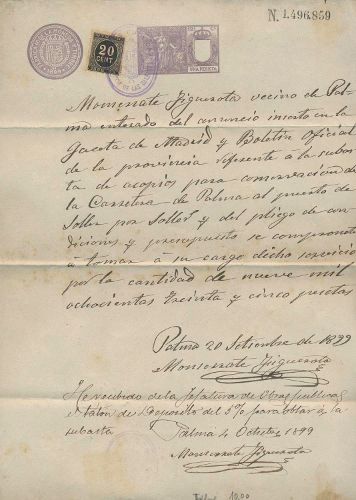 N. 1.496.859
20
CENT
UNA PESETA
Monserrate Figuerola vecino de Pal-
ma enterado del anuncio inserto en la
Gaceta de Madrid y Boletin Oficial
de la provincia referente a la subas
ta de acopios para conservacion de
la Carretera de Palma al puerto de
Soller por Soller y del pliego de con
diciones y presupuesto se compromete
á tomar á su cargo dicho servicio
por la cantidad de nueve mil
ochocientas treinta y cinco pesetas
Palma 20 Setiembre de 1899
Monserrate Figuerola
He recibido de la Jefatura de Obras publicas
el talon de deposito del 5% para obtar á la
subasta Palma 4 Octubre 1899
Monserrate Figuerola